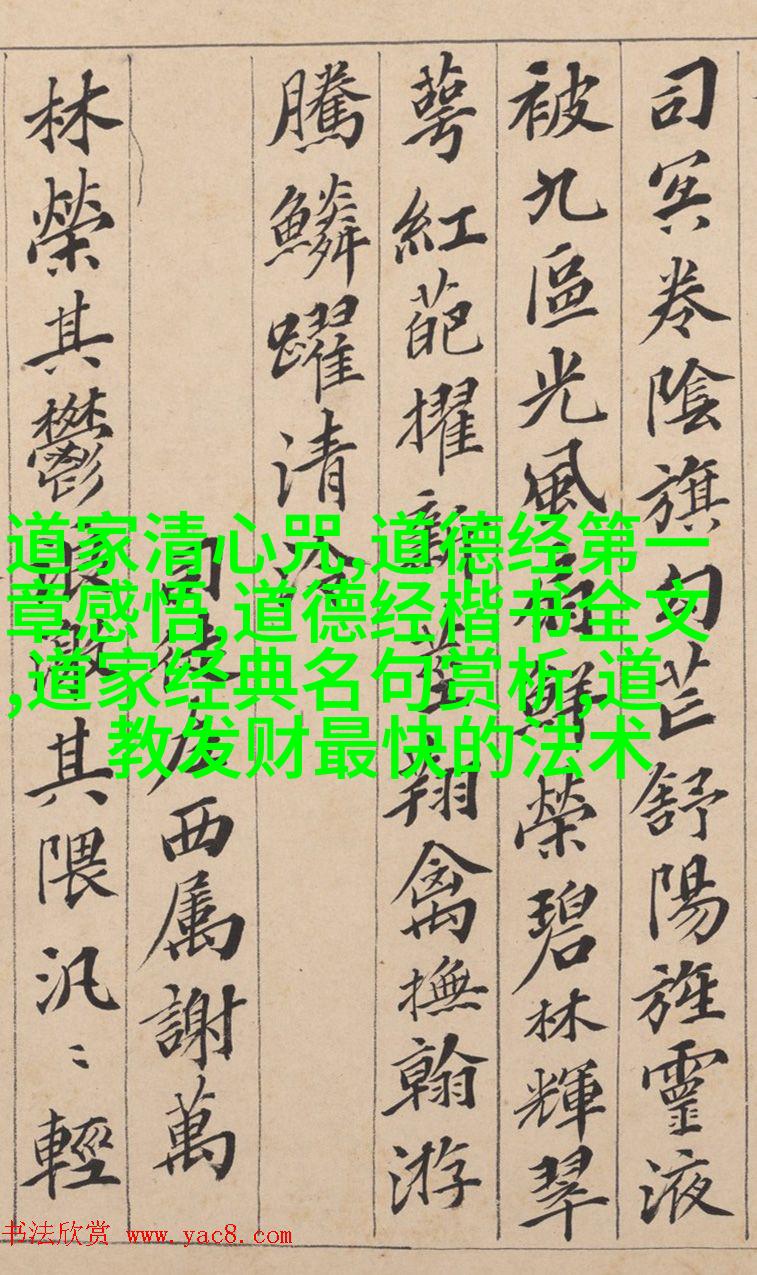 司冥卷陰旗句芒舒陽旌靈液
被九區光風扇鮮榮碧林輝翠
萼紅葩擢新莖翔禽撫翰游
騰鱗躍清泠
司徒左西属謝萬
林榮其鬱浪激其隈汎〻輕
道家清心咒,道德经第一
章感悟,道德经楷书全文
,道家经典名句赏析,道
教发财最快的法术
书法欣赏 www.yac8.com